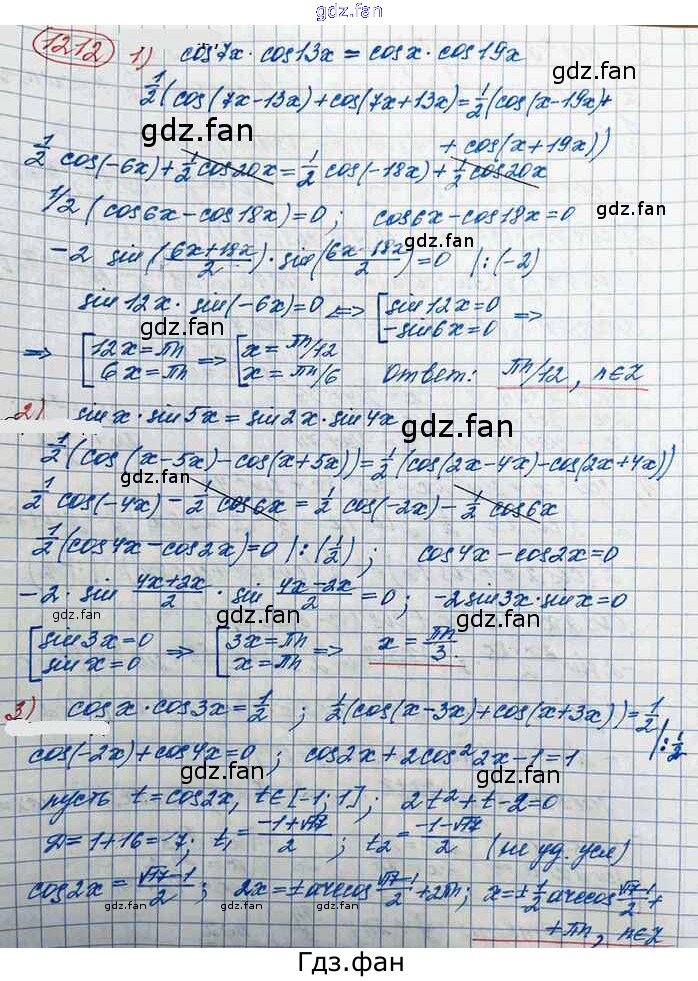 gdz.fan
1212 1) cos7x · cos13x = cosx · cos19x
gdz.fan
1/2(cos(7x-13x)+cos(7x+13x)=1/2(cos(x-19x)+
gdz.fan
+ cos(x+19x))
1/2 cos(-6x)+1/2 cos20x=1/2 cos(-18x)+1/2 cos20x
1/2 (cos6x-cos18x)=0; cos6x-cos18x=0
gdz.fan
gdz.fan
-2 sin(6x+18x/2)·sin(6x-18x/2)=0 |:(-2)
sin12x·sin(-6x)=0 <=> [sin12x=0 -sin6x=0 =>
gdz.fan
gdz.fan
=> [12x=πn 6x=πn => [x=πn/12 x=πn/6 Ответ: πn/12, n∈Z
gdz.fan
2) sinx·sin5x=sin2x·sin4x
gdz.fan
1/2(cos(x-5x)-cos(x+5x))=1/2(cos(2x-4x)-cos(2x+4x))
gdz.fan
1/2 cos(-4x)-1/2 cos6x=1/2 cos(-2x)-1/2 cos6x
gdz.fan
1/2(cos4x-cos2x)=0 |:(1/2); cos4x-cos2x=0
-2·sin 4x+2x/2 · sin 4x-2x/2 =0; -2sin3x·sinx=0
gdz.fan
gdz.fan
[sin3x=0 sinx=0 => [3x=πn x=πn => x=πn/3.
gdz.fan
3) cosx·cos3x=1/2; 1/2(cos(x-3x)+cos(x+3x))=1/2 |:1/2
cos(-2x)+cos4x=0; cos2x+2cos²2x-1=1
gdz.fan
gdz.fan
пусть t=cos2x, t∈[-1;1]; 2t²+t-2=0
D=1+16=17; t1=-1+√17/2; t2=-1-√17/2 (не уд. усл)
gdz.fan
gdz.fan
cos2x=√17-1/2; 2x=±arccos√17-1/2+2πn; x=±1/2arccos√17-1/2+
+πn, n∈Z
Гдз.фан